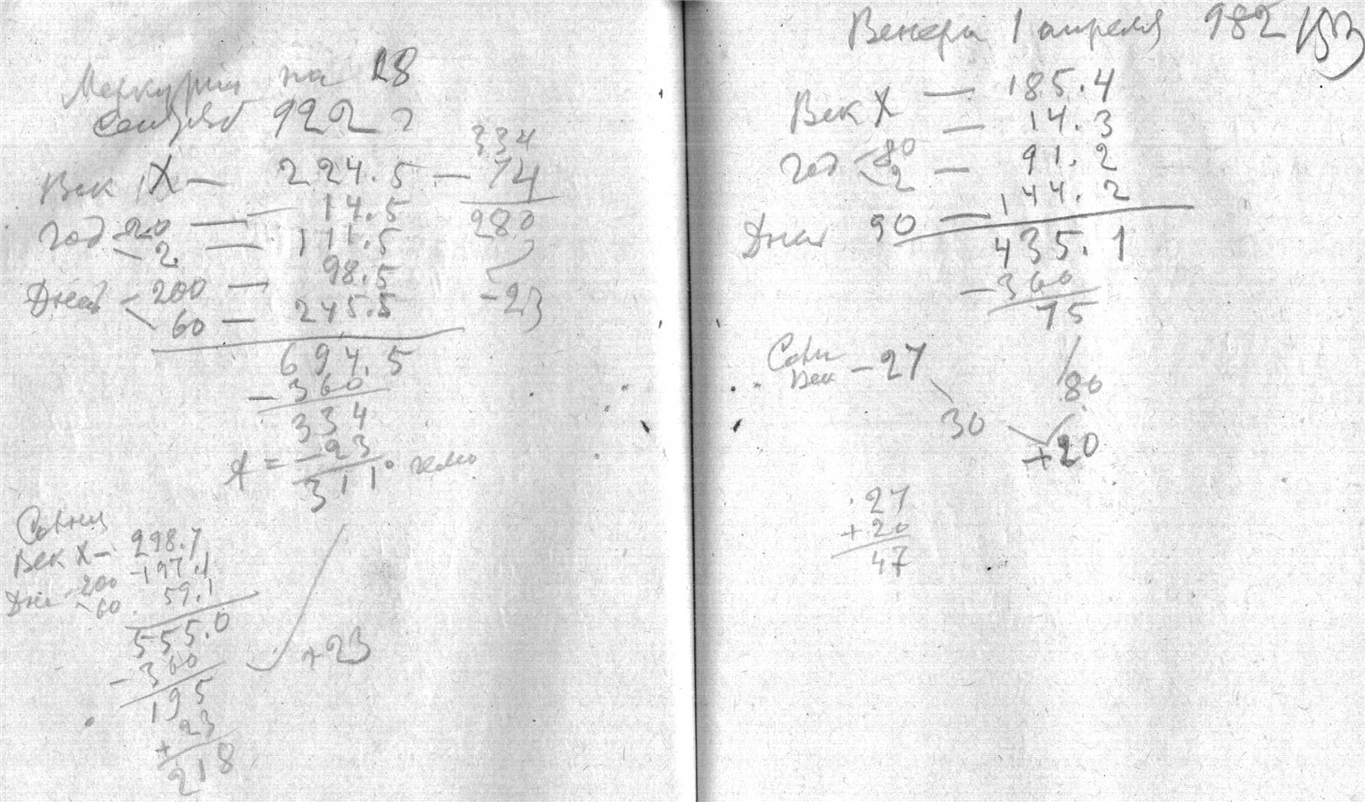 Меркурий на 28
Сентяб 922 г
334
Век IX — 224.5 — 74
280
Год 20 — 14.5
2 — 111.5
Дней 200 — 98.5
60 — 245.5
-23
694.5
-360
334
-23
311°
Век X — 298.7
Дне 200 197.1
60 59.1
555.0
-360
195
+23
218
+23
Венера 1 апреля 982
Век X — 185.4
Год 80 — 14.3
2 — 91.2
Дней 90 — 144.2
435.1
-360
75
Век — 27
80
30
+20
27
+20
47